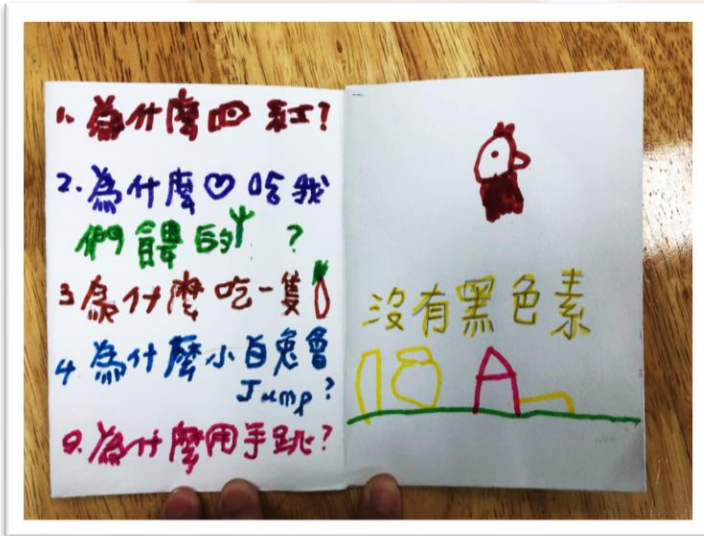 1. 為什麼 紅?
2. 為什麼♡吃我
們餵的 ?
3 為什麼吃一隻
4. 為什麼小白兔會
Jump?
為什麼用手跳?
沒有黑色素